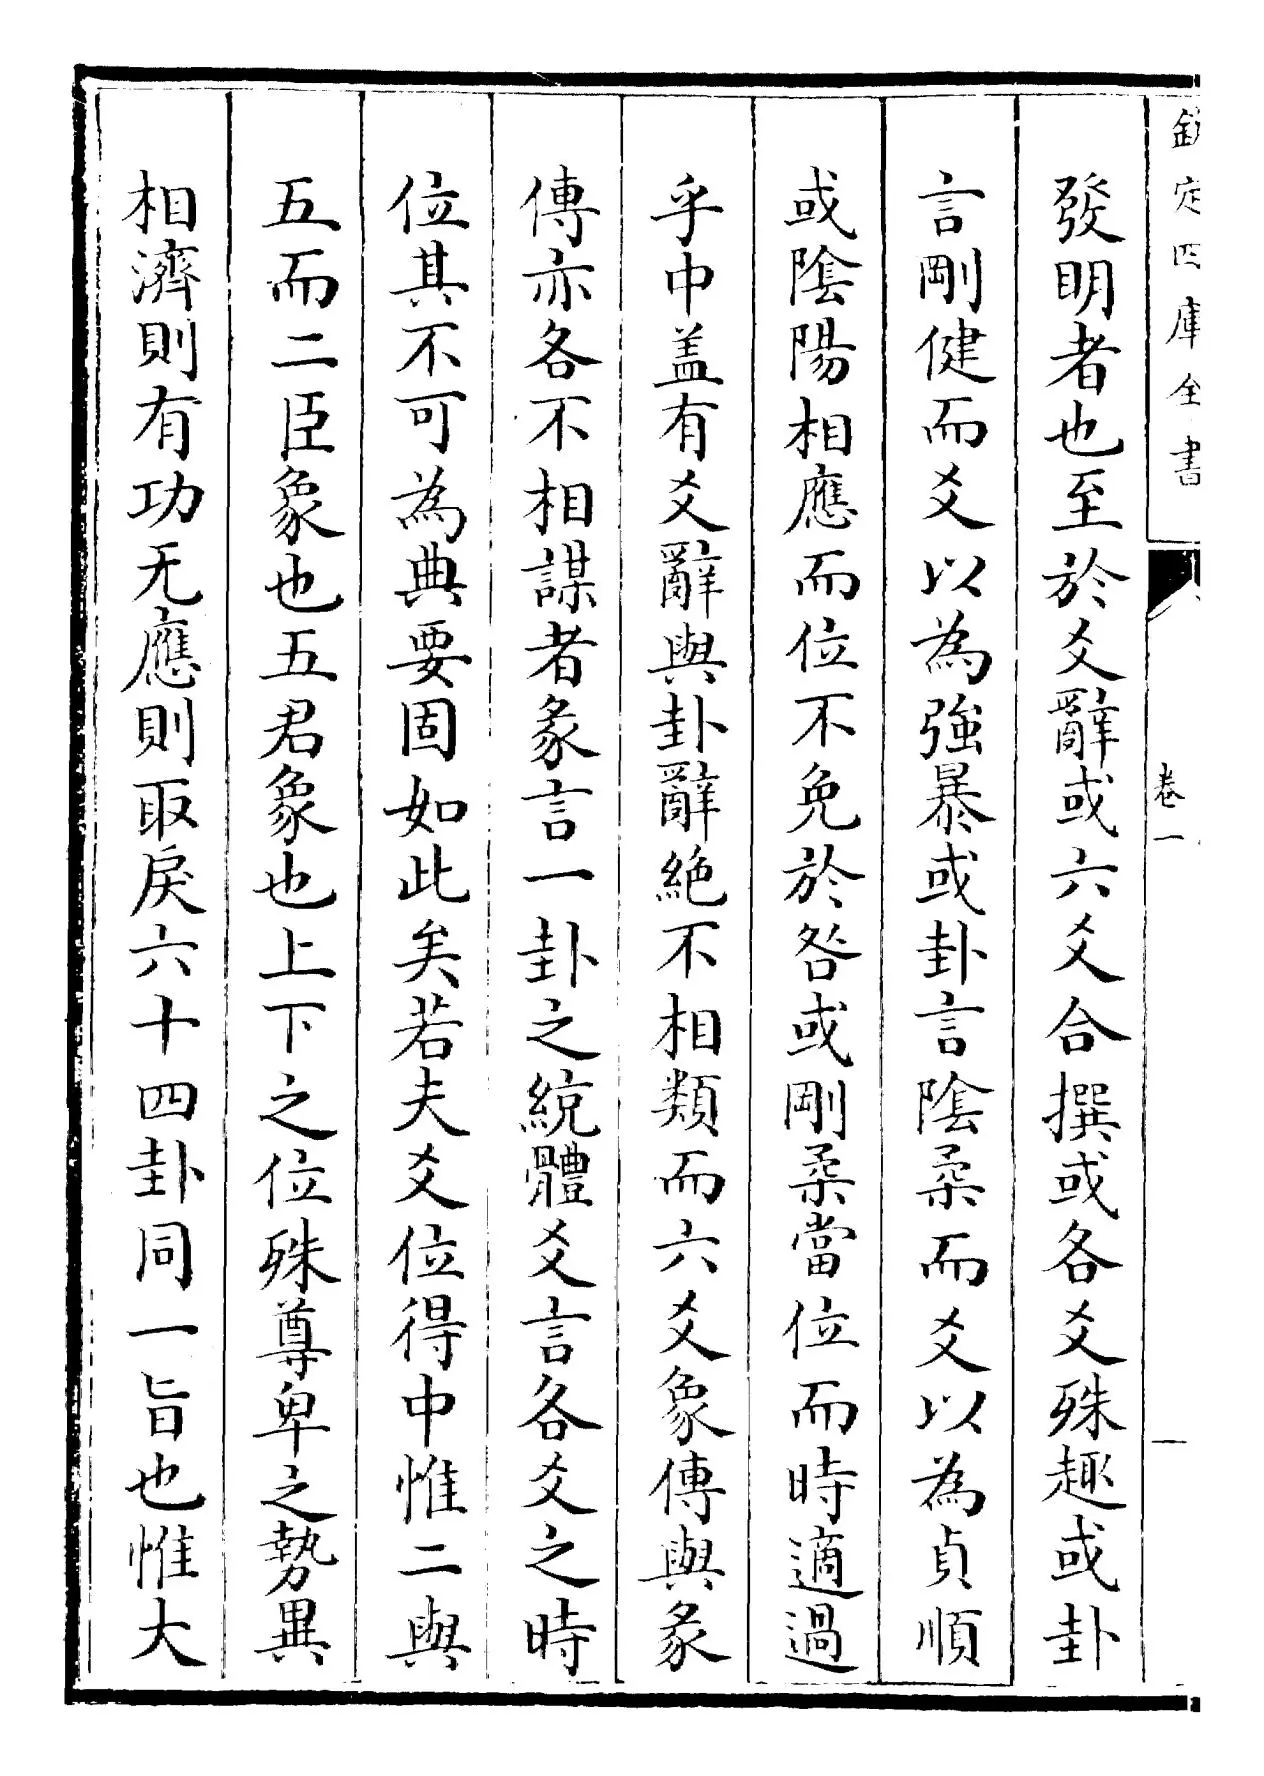 欽定四庫全書
卷一
一
發明者也至於爻辭或六爻合撰或各爻殊趣或卦
言剛健而爻以為強暴或卦言陰柔而爻以為貞順
或陰陽相應而位不免於咎或剛柔當位而時適過
乎中盖有爻辭與卦辭絶不相類而六爻象傳與彖
傳亦各不相謀者彖言一卦之統體爻言各爻之時
位其不可為典要固如此矣若夫爻位得中惟二與
五而二臣象也五君象也上下之位殊尊卑之勢異
相濟則有功无應則取戾六十四卦同一旨也惟大